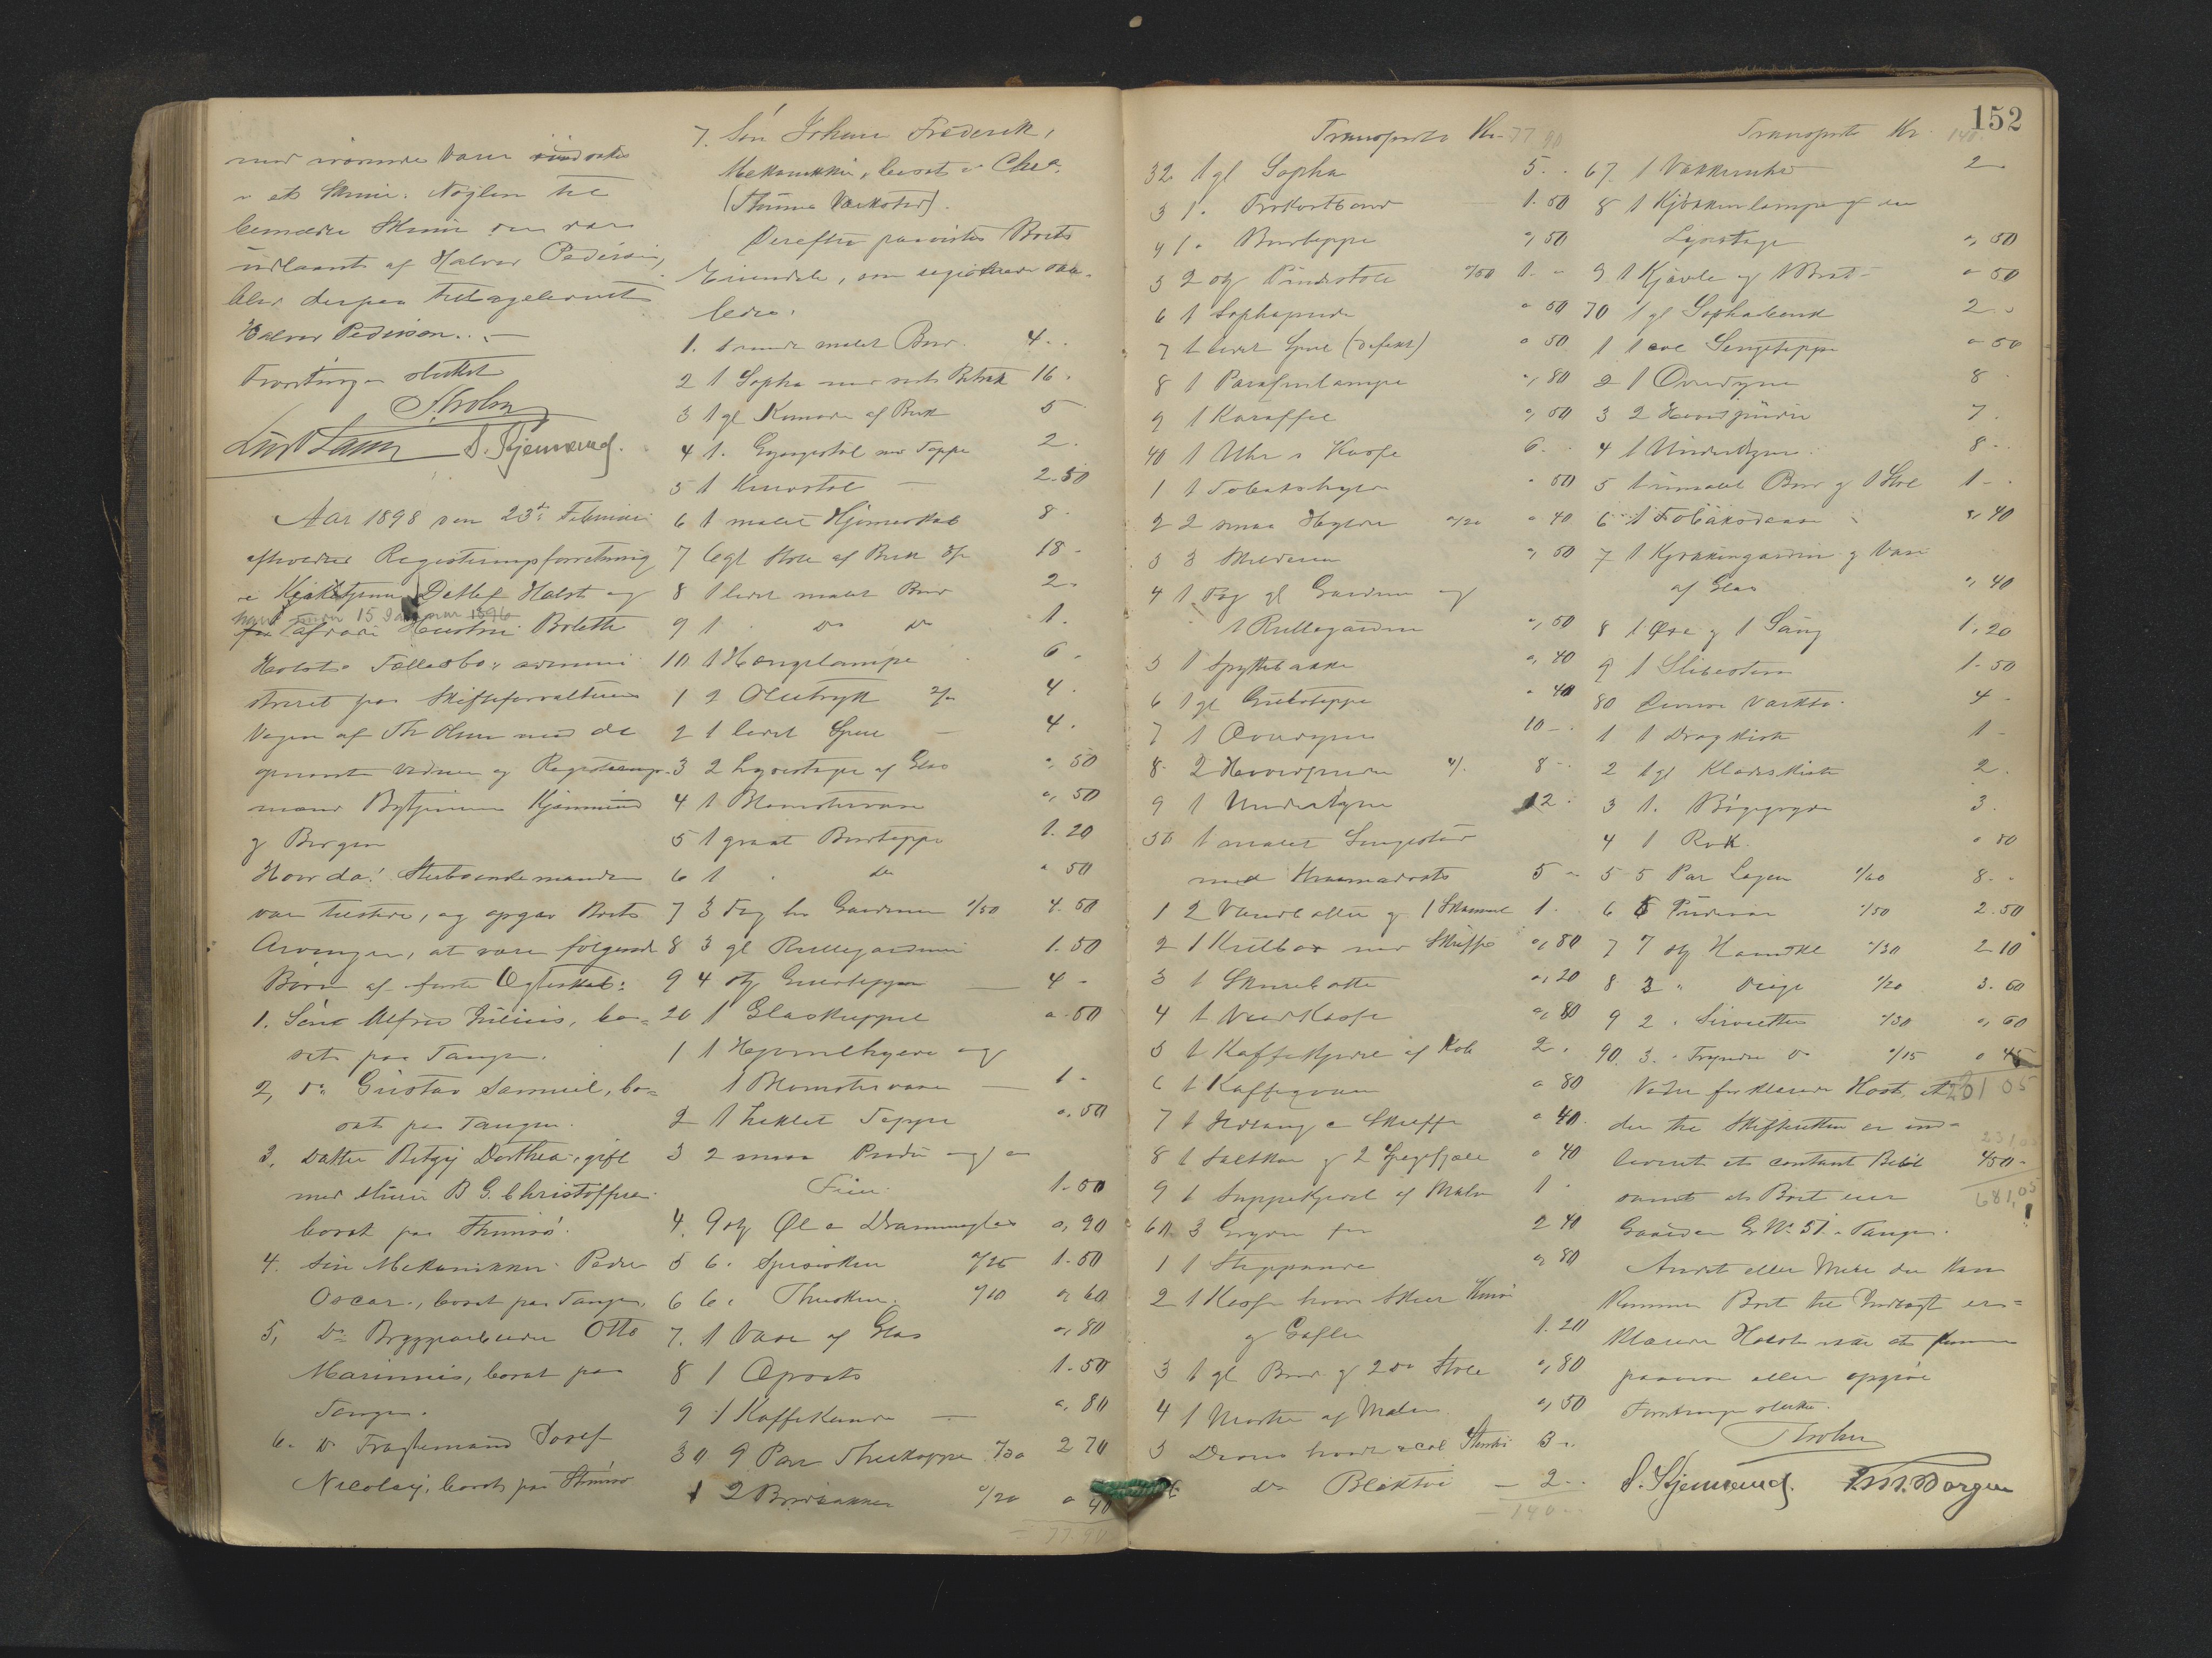 med
i et Skrin. Nøglen til
bemeldte Skrin som var
udlaant af Halvor Pedersen,
blev derpaa tilbageleveret
Halvor Pedersen. –
Forretningen sluttet
S. Kjemerud.
Aar 1898 den 23de Februar
afholdtes Registreringsforretning
i Detlef Holst og
15 Januar 1896
Hustru Bolette
Holsts Fællesbo, admini
streret paa Skifteforvalterens
Vegne af Th Olsen med de
opnævnte Vidner og Registrerings-
mænd Kjemmerud
og Borgen
Hvorda: Stervboenkemanden
var tilstede, og opgav Boets
Arvinger, at være følgende
Børn af første Ægteskab:
1. Søn Alfred Julius, bo=
sat paa Tangen.
2, do Gustav Samuel, bo=
sat paa Tangen.
3, Datter Betzy Dorthea, gift
med B G. Christoffersen
bosat paa Strømsø.
4. Søn Mekaniker Peder
Oscar, bosat paa Tangen,
5, do Bryggearbeider Otto
Marinius, bosat paa
Tangen.
6. do Fragtemand Josef
Nicolay, bosat paa Strømsø
7. Søn Johan Frederik,
Mekaniker, bosat i
(Thunes Værksted).
Derefter paavistes Boets
Eiendele, som registreredes saa-
ledes:
1. 1 rundt malet Bord. 4. -
2 1 Sopha med rødt Betræk 16.
3 1 gl Komode af Birk 5
4 1 Gyngestol med Teppe 2.
5 1 Kurvstol – 2.50
6 1 malet Hjørneskab 8.
7 6 gl Stole af Birk 18 -
8 1 lidet malet Bord 2.
9 1 do do 1.
10 1 Hængelampe 6.
1 2 Olietryk 4.
2 1 lidet Speil – 4.
3 2 Lysestager af Glas " 50
4 1 Blomstervase " 50
5 1 graat Bordteppe 1.20
6 1 do " 50
7 3 Fag Gardiner 1/50 4.50
8 3 gl Rullegardiner 1.50
9 4 stk – 4 -
20 1 Glaskuppel " 50
1 1 Hjørnehylde og
1 Blomstervase – 1 -
2 1 heklet Teppe ", 50
3 2 smaa Puder og en
1.50
4. 9 stk Øl & Dramneglas ", 90
5 6. Spiseskeer "/25 1.50
6 6. Theskeer. "/10 " 60
7. 1 Vase af Glas " 80
8 1 Opsats 1.50
9 1 Kaffekande – " 80
30 9 Par Thekopper "/30 2 70
1 2 Brødbakker "/20 " 40
77.90
152
Transport Kr 77 90
32 1 gl Sopha 5. -
3 1. 1.50
4 1 " Bordteppe ", 50
5 2 stk Pindestole "/50 1. -
6 1 Sophapude " 50
7 1 lidet Speil (defekt) " 50
8 1 Parafinlampe ", 80
9 1 Karaffel ", 50
40 1 Uhr i Kasse 6. -
1 1 Tobakshylde " 50
2 2 smaa Hylder "/20 " 40
3 3 Skilderier ", 50
4 1 Fag gl Gardiner og
1 Rullegardin ", 50
5 1 Spyttebakke ", 40
6 1 gl Gulvteppe " 40
7 1 Overdyne 10 -
8 2 Hovedpuder 4/. 8 -
9 1 Underdyne 12.
50 1 malet Sengested
med 5 -
1 2 og 1 Skammel 1.
2 1 Kulbox med Skuffe ", 80
3 1 Skurebøtte ", 20
4 1 Vedkasse ", 80
5 1 Kaffekjedel af Kob 2.
6 1 Kaffekvern " 80
7 1 Ildtang & Skuffe " 40.
8 1 Saltkar og 2 Spegefjæle " 40
9 1 Suppekjedel af Malm 1.
60 3 Gryder 2 40
1 1 Stegepande " 80
2 1 Kasse hvori Skeer Knive
og Gafler 1.20
3 1 gl Bord og 2 do Stole ", 80
4 1 Morter af Malm ", 50
5 Diverse hvidt & col Stentøi 3 -
6 do Bliktøi – 2 -
140
Transport Kr. 140.
67. 1 Vækkeruhr 2
8 1 Kjøkkenlampe og en
Lysestage ", 50
9 1 Kjævle og 1 Bræt – " 50
70 1 gl Sophabenk 2 -
1 1 col Sengeteppe " 50
2 1 Overdyne 8
3 2 Hovedpuder 7.
4 1 Underdyne 8 -
5 1 umalet Bord og 1 Stol 1 -
6 1 Tobaksdaase ", 40
7 1 Kjøkkengardin og Vase
af Glas ", 40
8 1 Øxe og 1 Saug 1.20
9 1 Slibesten 1.50
80 Diverse Værktøi 4 -
1 1 Dragkiste 1 -
2 1 gl Klædeskiste 2.
3 1. 3.
4 1 Rok " 80
5 5 Par Lagen 1/60 8. -
6 5 Pudevar "/50 2.50
7 7 stk Haandkl "/30 2 10
8 3 " Duge 1/20 3.60
9 2 " Servietter "/30 ", 60
90. 3 " do "/15 " 45
Videre forklarede Holst, at 231 05
der til Skifteretten er ind=
leveret et contant Beløb 450 -
samt at Boet eier 681,05
Gaarden Gr No 51. Tangen.
Andet eller Mere der kan
komme Boet til Indtægt er=
klærede Holst ikke at kunne
paavise eller opgive
Forretningen sluttet.
S. Kjemerud. Borgen